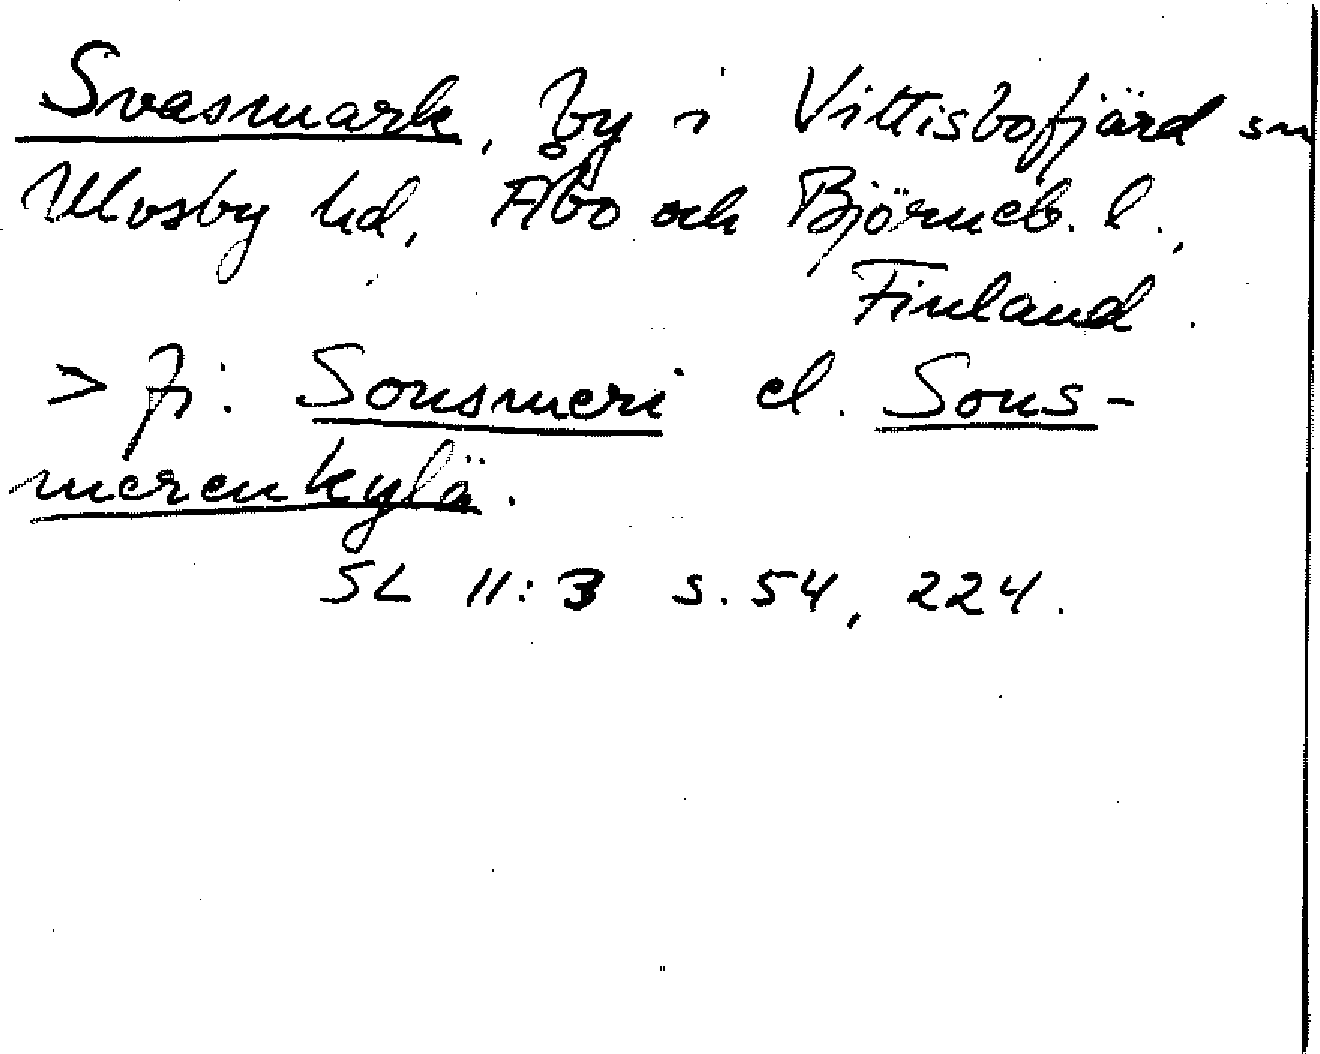 Svasmark, by i Vittisbofjärd sn
Ulvsby hd, Åbo och Björneb. l.,
Finland.
> fi. Sousmeri el. Sous-
merenkylä.
SL 11:3 s. 54, 224.